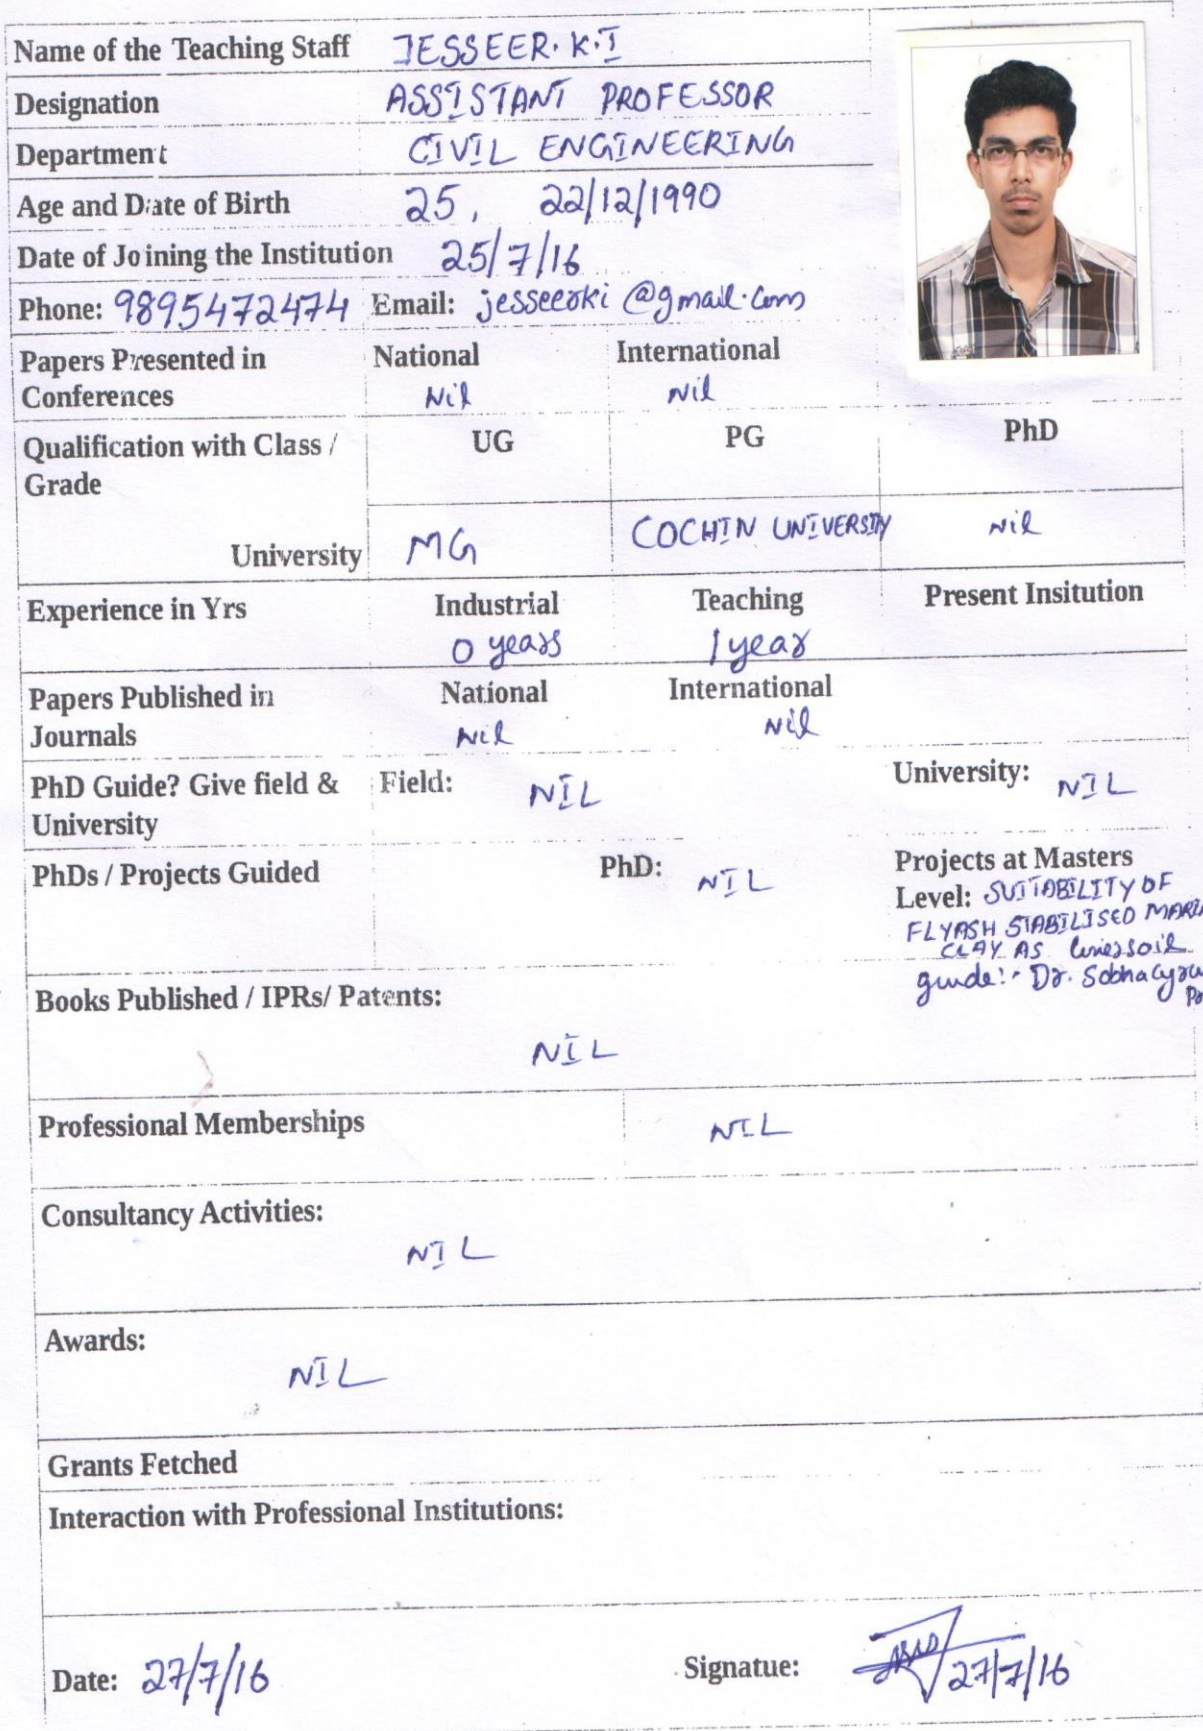 Name of the Teaching Staff JESSEER. K.I
Designation ASSISTANT PROFESSOR
Department CIVIL ENGINEERING
Age and Date of Birth 25, 22/12/1990
Date of Joining the Institution 25/7/16
Phone: 9895472474 Email: jesseerki@gmail.com
Papers Presented in National International
Conferences Nil Nil
Qualification with Class / UG PG PhD
Grade
University MG COCHIN UNIVERSITY Nil
Experience in Yrs Industrial Teaching Present Insitution
0 years 1 year
Papers Published in National International
Journals Nil Nil
PhD Guide? Give field & Field: NIL University: NIL
University
PhDs / Projects Guided PhD: NIL Projects at Masters
Level: SUITABILITY OF
FLYASH STABILISED
CLAY AS soil
guide:- Dr. Sobha
Books Published / IPRs/ Patents:
NIL
Professional Memberships NIL
Consultancy Activities:
NIL
Awards:
NIL
Grants Fetched
Interaction with Professional Institutions:
Date: 27/7/16 Signatue: 27/7/16